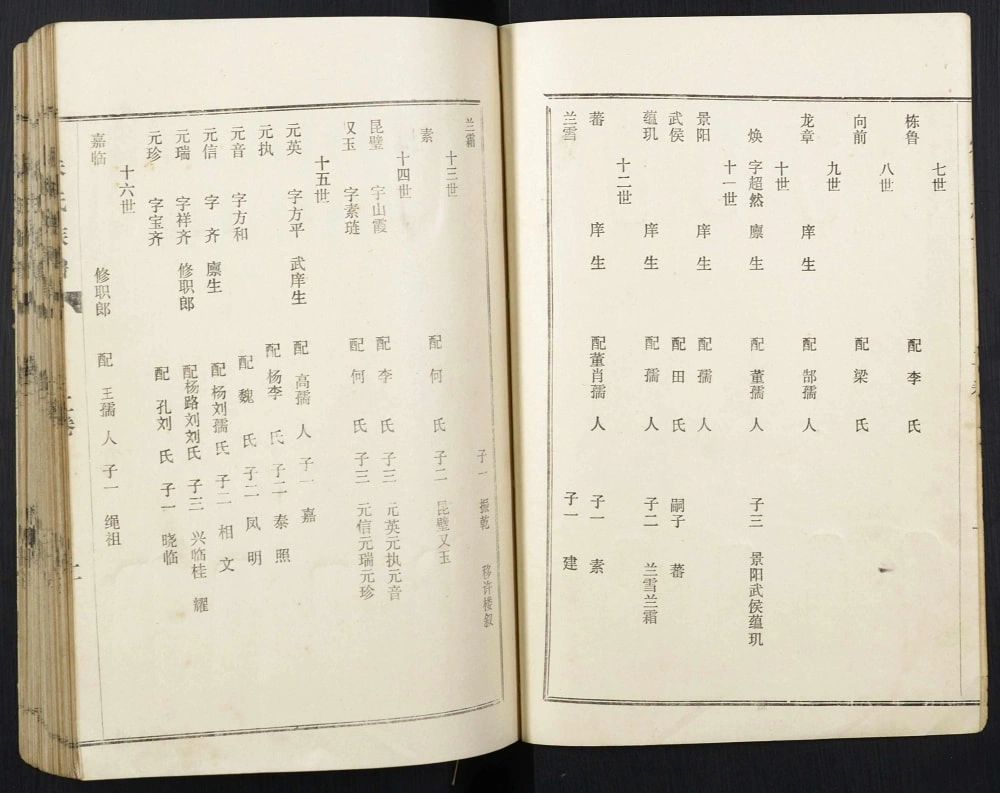 七世
栋鲁 配李氏
八世
向前 配梁氏
九世
龙章 庠生 配郜孺人
十世
焕 字超然 廪生 配董孺人 子三 景阳武侯蕴玑
十一世
景阳 庠生 配孺人
武侯 配田氏 嗣子 蕃
蕴玑 庠生 配孺人 子二 兰雪兰霜
十二世
蕃 庠生 配董肖孺人 子一 素
兰雪 子一 建
兰霜 子一 振乾 移许楼叙
十三世
素 配何氏 子二 昆璧又玉
十四世
昆璧 字山霞 配李氏 子三 元英元执元音
又玉 字素琏 配何氏 子三 元信元瑞元珍
十五世
元英 字方平 武庠生 配高孺人 子一 嘉
元执 配杨李氏 子二 泰照
元音 字方和 配魏氏 子二 凤明
元信 字齐 廪生 配杨刘孺氏 子二 相文
元瑞 字祥齐 修职郎 配杨路刘刘氏 子三 兴临桂耀
元珍 字宝齐 配孔刘氏 子一 晓临
十六世
嘉临 修职郎 配王孺人 子一 绳祖